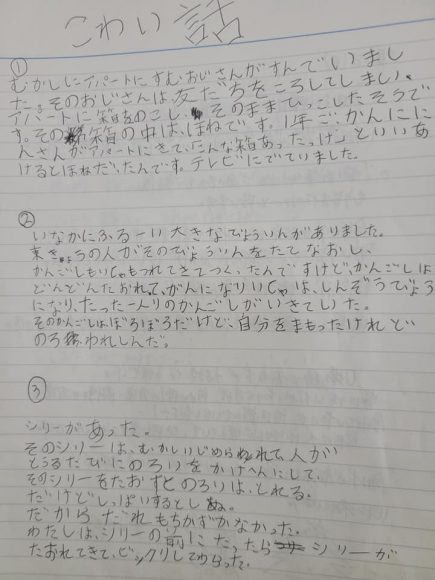 こわい話
①
むかしにアパートにすむおじさんがすんでいまし
た。そのおじさんは友だちをころしてしまい、
アパートに箱をのこし、そのままひっこしたそうで
す。その箱の中は、ほねです。1年ご、かんにに
んさんがアパートにきて、「こんな箱あったっけ」といいあ
けるとほねだったんです。テレビにでていました。
②
いなかにふるーい大きなびょういんがありました。
東きょうの人がそのびょういんをたてなおし、
かんごしもいしゃもつれてきてつくったんですけど、かんごしは
どんどんたおれて、がんになりいしゃは、しんぞうびょう
になり、たった一人りのかんごしがいきていた。
そのかんごしは、ぼろぼろだけど、自分をまもったけれど
のろわれしんだ。
③
シリーがあった。
そのシリーは、むかしいじめられて、人が
とうるたびにのろいをかけへんにして、
そのシリーをたおすとのろいは、とれる。
だけどしっぱいするとしぬ。
だからだれもちかずかなかった。
わたしは、シリーの前にたったら シリーが
たおれてきて、ビックリしてわらった。